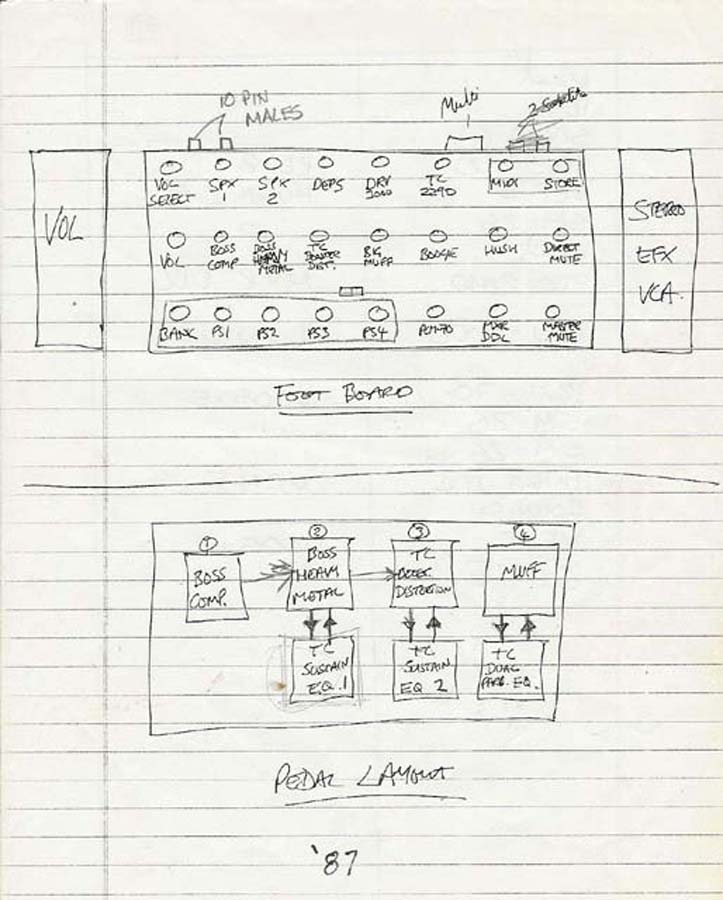 10 PIN
MALES
Multi
VOL
VOL SELECT
SPX 1
SPX 2
DEPS
DRY 2000
TC 2290
MIDI
STORE
STEREO
EFX
VCA.
VOL
BOSS COMP
BOSS HEAVY METAL
TC BOOSTER DIST.
BIG MUFF
BOOGIE
HUSH
DIRECT MUTE
BANK
PS1
PS2
PS3
PS4
PCM-70
MXR DDL
MASTER MUTE
FOOT BOARD
①
②
③
④
BOSS
COMP.
BOSS
HEAVY
METAL
TC
BOOST.
DISTORTION
MUFF
TC
SUSTAIN
EQ.1
TC
SUSTAIN
EQ 2
TC
DUAL
PARA. EQ.
PEDAL LAYOUT
'87